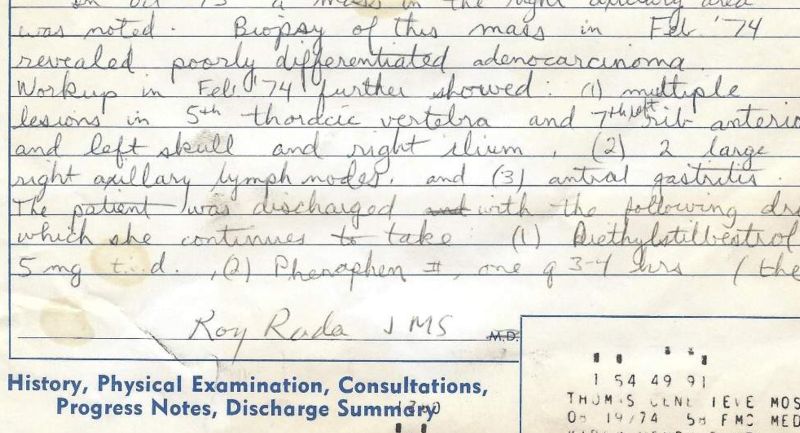 in Oct '73 a mass in the right axillary area
was noted. Biopsy of this mass in Feb '74
revealed poorly differentiated adenocarcinoma.
Workup in Feb. '74 further showed: (1) multiple
lesions in 5th thoracic vertebra and 7th left rib anterio
and left skull and right ilium, (2) 2 large
right axillary lymph nodes, and (3) antral gastritis.
The patient was discharged and with the following dr
which she continues to take (1) Diethylstilbestrol
5 mg t.i.d., (2) Phenaphen #, one q 3-4 hrs (the
Roy Rada JMS M.D.
History, Physical Examination, Consultations,
Progress Notes, Discharge Summary
1 54 49 91
MOS
19/74 FMC MED